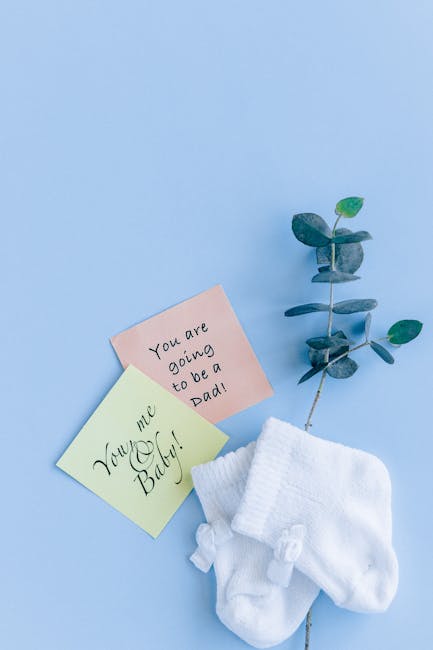 You are
going
to be a
Dad!
You, me
&
Baby!